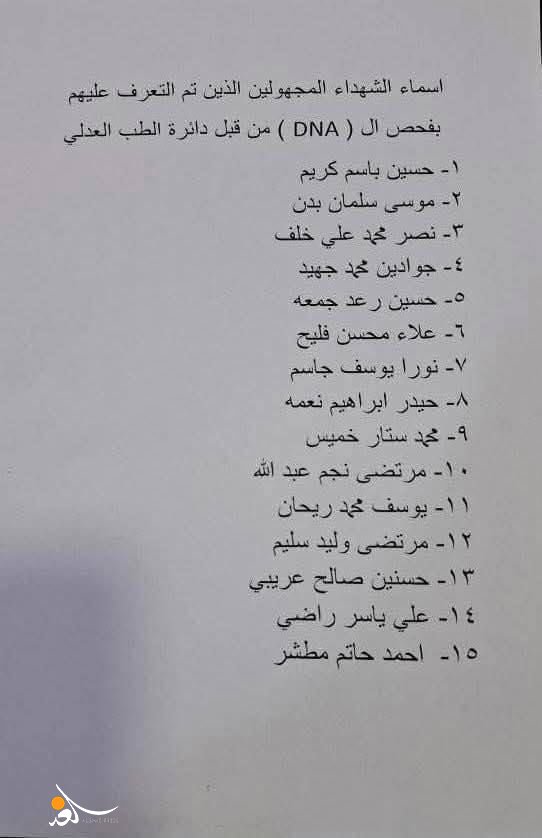 اسماء الشهداء المجهولين الذين تم التعرف عليهم
بفحص ال ( DNA ) من قبل دائرة الطب العدلي
١- حسين باسم كريم
٢- موسى سلمان بدن
٣- نصر محمد علي خلف
٤- جوادين محمد جهيد
٥- حسين رعد جمعه
٦- علاء محسن فليح
٧- نورا يوسف جاسم
٨- حيدر ابراهيم نعمه
٩- محمد ستار خميس
١٠- مرتضى نجم عبد الله
١١- يوسف محمد ريحان
١٢- مرتضى وليد سليم
١٣- حسنين صالح عريبي
١٤- علي ياسر راضي
١٥- احمد حاتم مطشر